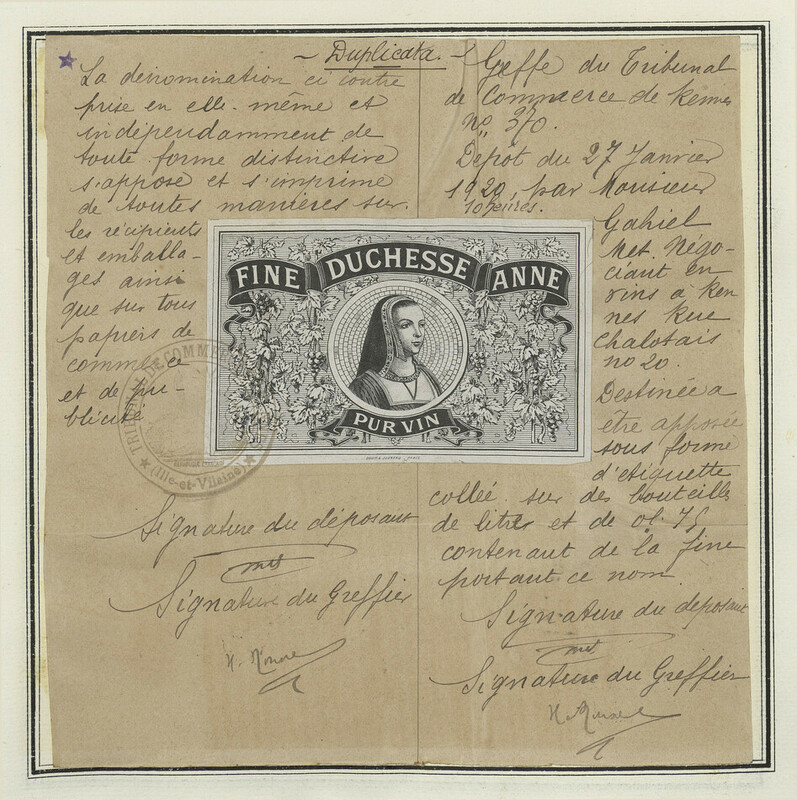 ~ Duplicata. ~
La dénomination ci contre
prise en elle-même et
indépendamment de
toute forme distinctive
s'appose et s'imprime
de toutes manières sur
les récipients
et emballa-
ges ainsi
que sur tous
papiers de
commerce
et de pu-
blicité
Signature du déposant
Met
Signature du Greffier
Greffe du Tribunal
de Commerce de Rennes
no 370.
Dépôt du 27 Janvier
1920, par Monsieur
10 heures.
Gahiel
Met. Négo-
ciant en
vins à Ren
nes Rue
Chalotais
no 20.
Destinée a
être apposée
sous forme
d'etiquette
collée sur des bouteilles
de litres et de 0l.75
contenant de la fine
portant ce nom.
Signature du déposant
Met
Signature du Greffier
FINE DUCHESSE ANNE
PUR VIN
TRIBUNAL DE COMMERCE
(Ille-et-Vilaine)